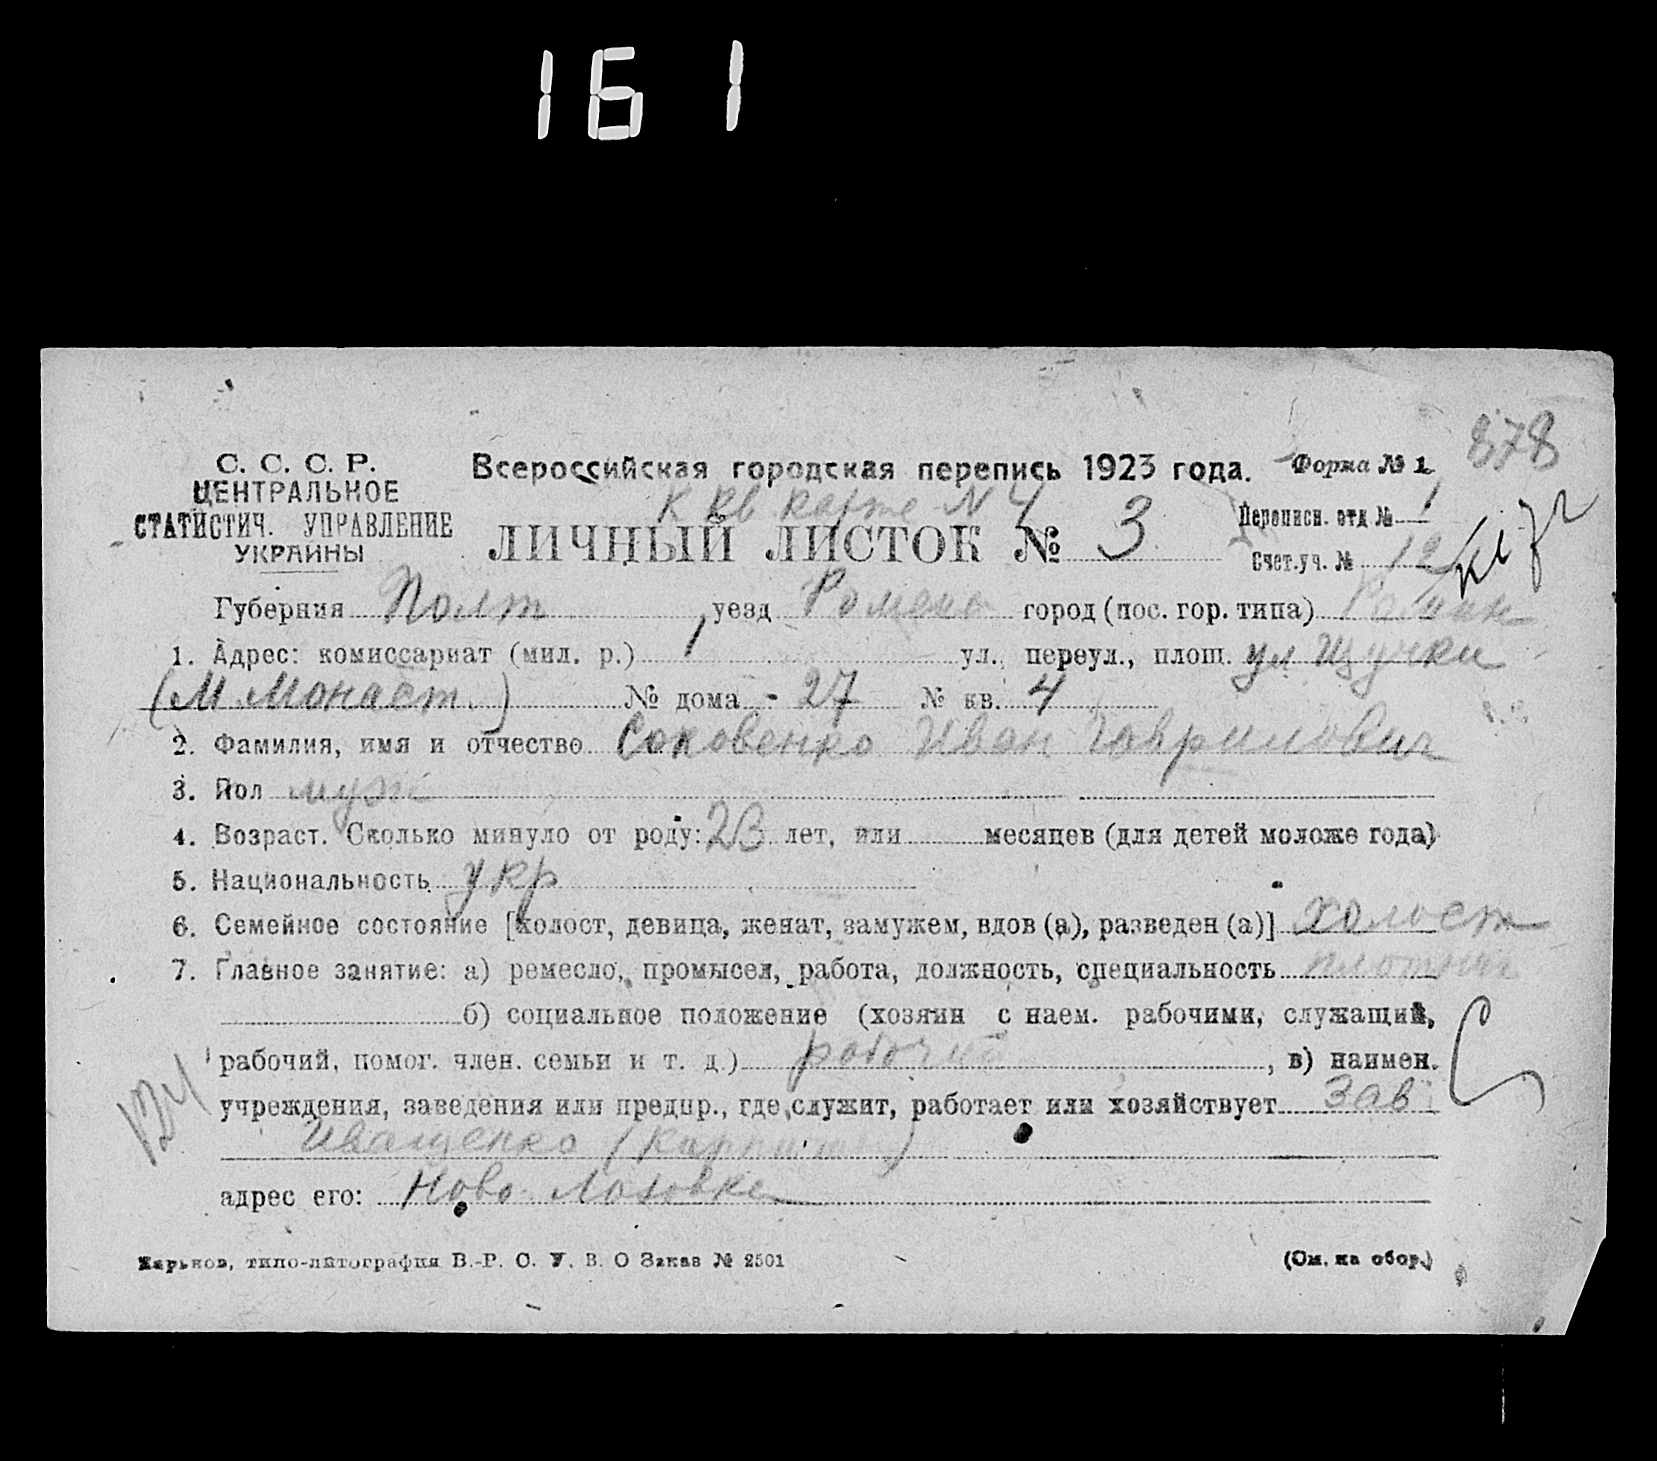 161
878
С. С. С. Р.
ЦЕНТРАЛЬНОЕ
СТАТИСТИЧ. УПРАВЛЕНИЕ
УКРАИНЫ
Всероссийская городская перепись 1923 года.
Форма № 1
К кв карте N 4
ЛИЧНЫЙ ЛИСТОК № 3
Переписн. отд № 1
Счет.уч. № 12
Губерния Полт уезд Ромены город (пос. гор. типа)
1. Адрес: комиссариат (мил. р.) 1 ул., переул., площ. ул
(М. Монаст.) № дома - 27 № кв. 4
2. Фамилия, имя и отчество Соковенко Иван Гаврилович
3. Пол муж
4. Возраст. Сколько минуло от роду: 23 лет, или месяцев (для детей моложе года)
5. Национальность укр
6. Семейное состояние [холост, девица, женат, замужем, вдов (а), разведен (а)] холост
7. Главное занятие: а) ремесло, промысел, работа, должность, специальность плотник
б) социальное положение (хозяин с наем. рабочими, служащий,
рабочий, помог. член. семьи и т. д.) рабочий, в) наимен.
учреждения, заведения или предпр., где служит, работает или хозяйствует Зав
Иващенко
адрес его: Ново Лозовке
Харьков, типо-литография В.-Р. С. У. В. О Заказ № 2501
(См. на обор.)